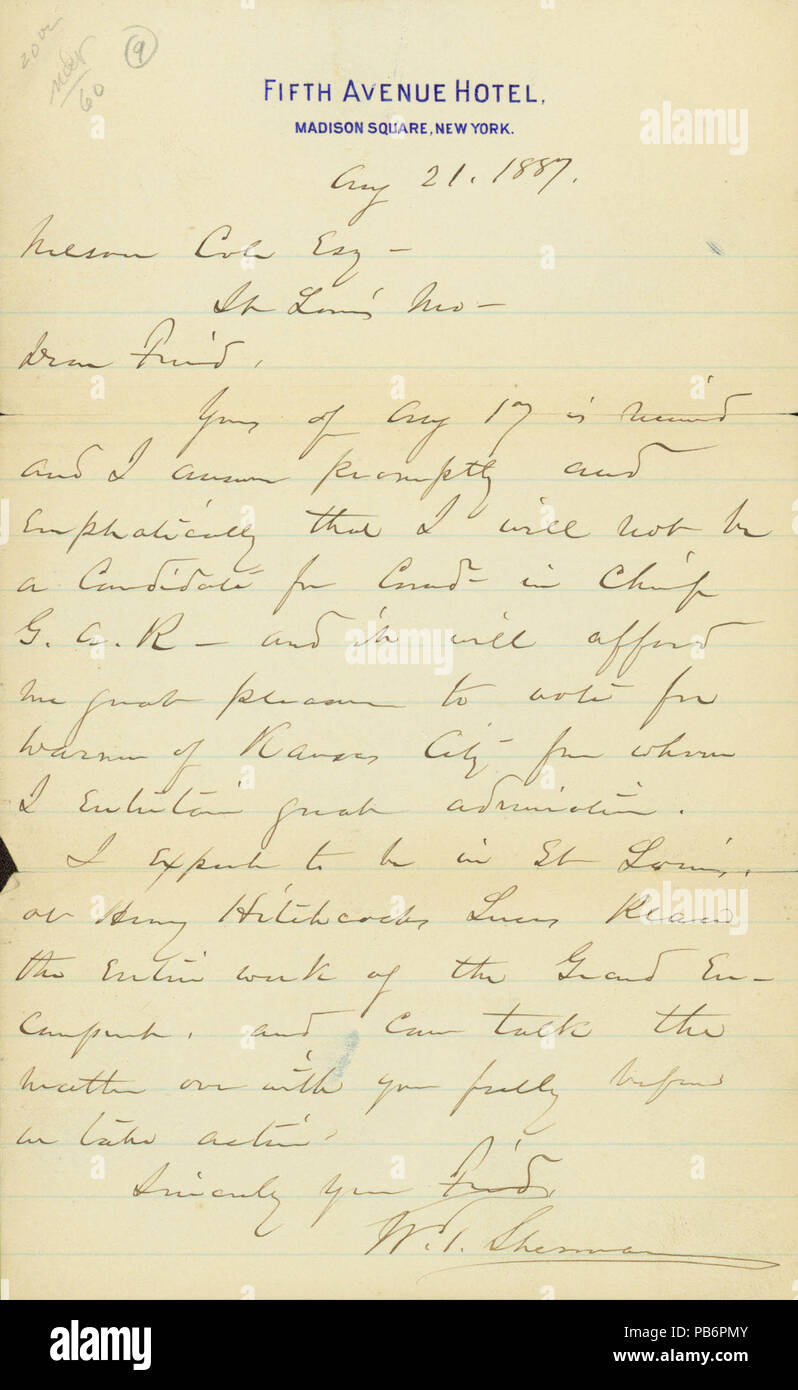 9
60
FIFTH AVENUE HOTEL,
MADISON SQUARE, NEW YORK.
Aug 21. 1887.
Nelson Cole Esq –
St Louis Mo –
Dear Friend,
Yours of Aug 17 is received
and I answer promptly and
Emphatically that I will not be
a Candidate for Comd– in Chief
G. A. R – and it will afford
me great pleasure to vote for
Warner of Kansas City for whom
I Entertain great admiration.
I expect to be in St Louis,
at Henry Hitchcocks Lucas Place
the Entire week of the Grand En-
campmt. and can talk the
matter over with you fully before
we take action.
Sincerely your Friend,
W. T. Sherman
alamy
Image ID: PB6PMY
www.alamy.com